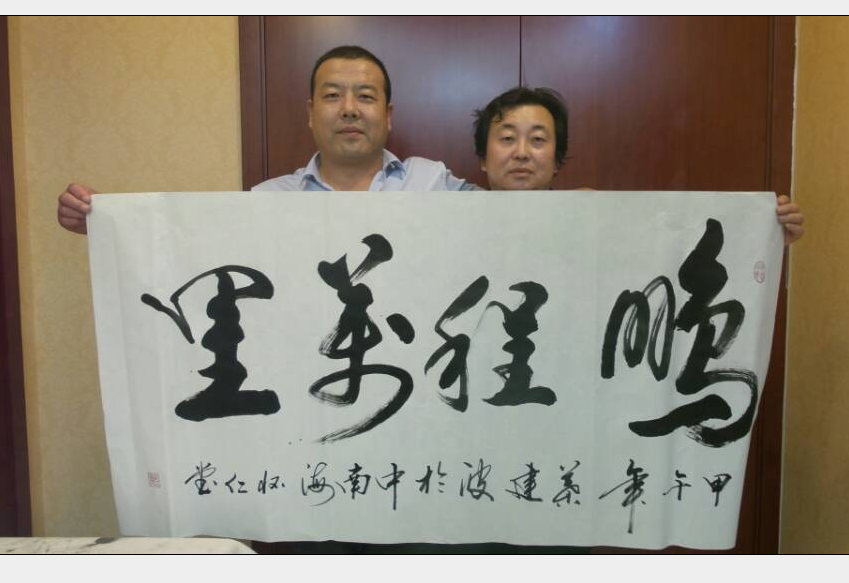 鹏程萬里
甲午年葉建波於中南海怀仁堂